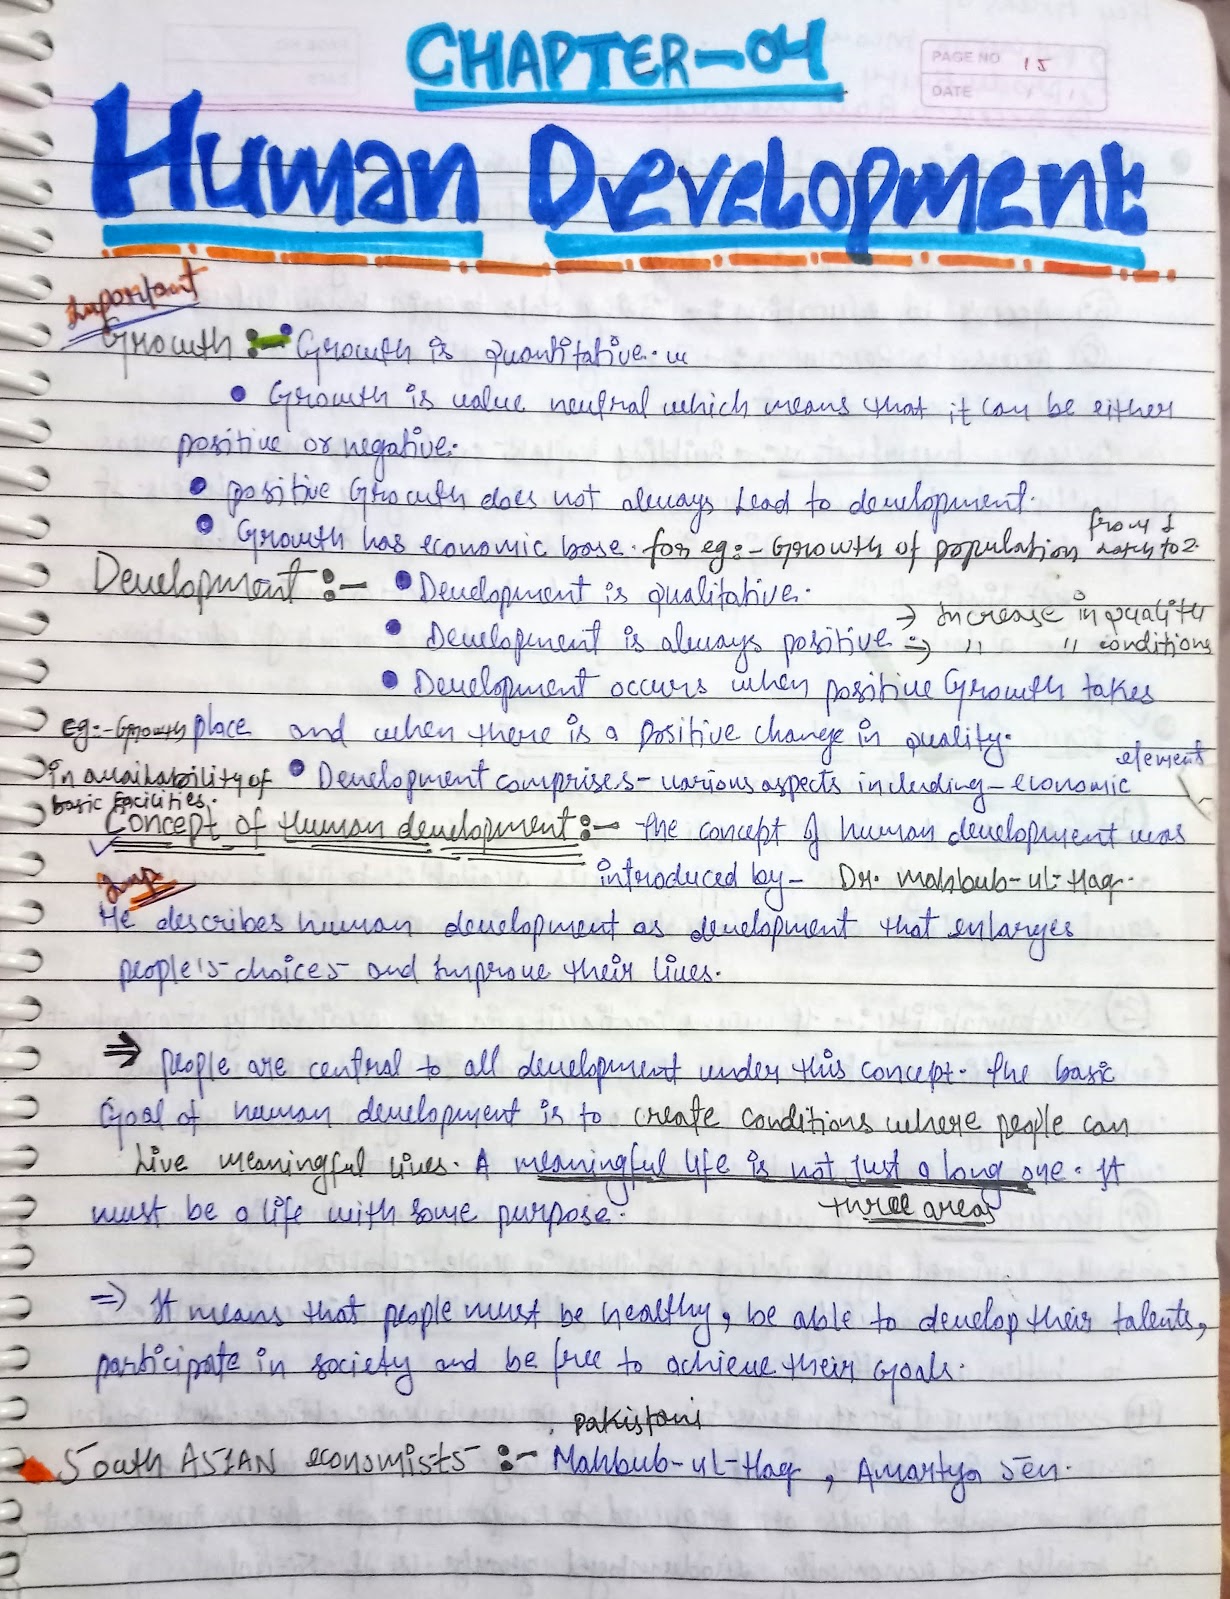 CHAPTER-04
PAGE NO 15
DATE / /
Human Development
Important
Growth :- Growth is quantitative.
• Growth is value neutral which means that it can be either
positive or negative.
• positive Growth does not always Lead to development.
• Growth has economic base. for eg:- Growth of population from 1
to 2.
Development :- • Development is qualitative.
→ Increase in quality
• Development is always positive ⇒ " " conditions
• Development occurs when positive Growth takes
eg:- Growth place and when there is a Positive change in quality.
element
in availability of • Development comprises- various aspects including - economic
basic facilities.
Concept of Human development :- the concept of human development was
Imp
introduced by- Dr. Mahbub-ul-Haq.
He describes human development as development that enlarges
people's choices and improve their lives.
⇒ people are central to all development under this concept. the basic
Goal of human development is to create conditions where people can
Live meaningful lives. A meaningful life is not just a long one. It
must be a life with some purpose. three areas
⇒ It means that people must be healthy, be able to develop their talents,
participate in society and be free to achieve their goals.
Pakistani
South ASIAN economists :- Mahbub-ul-Haq, Amartya Sen.